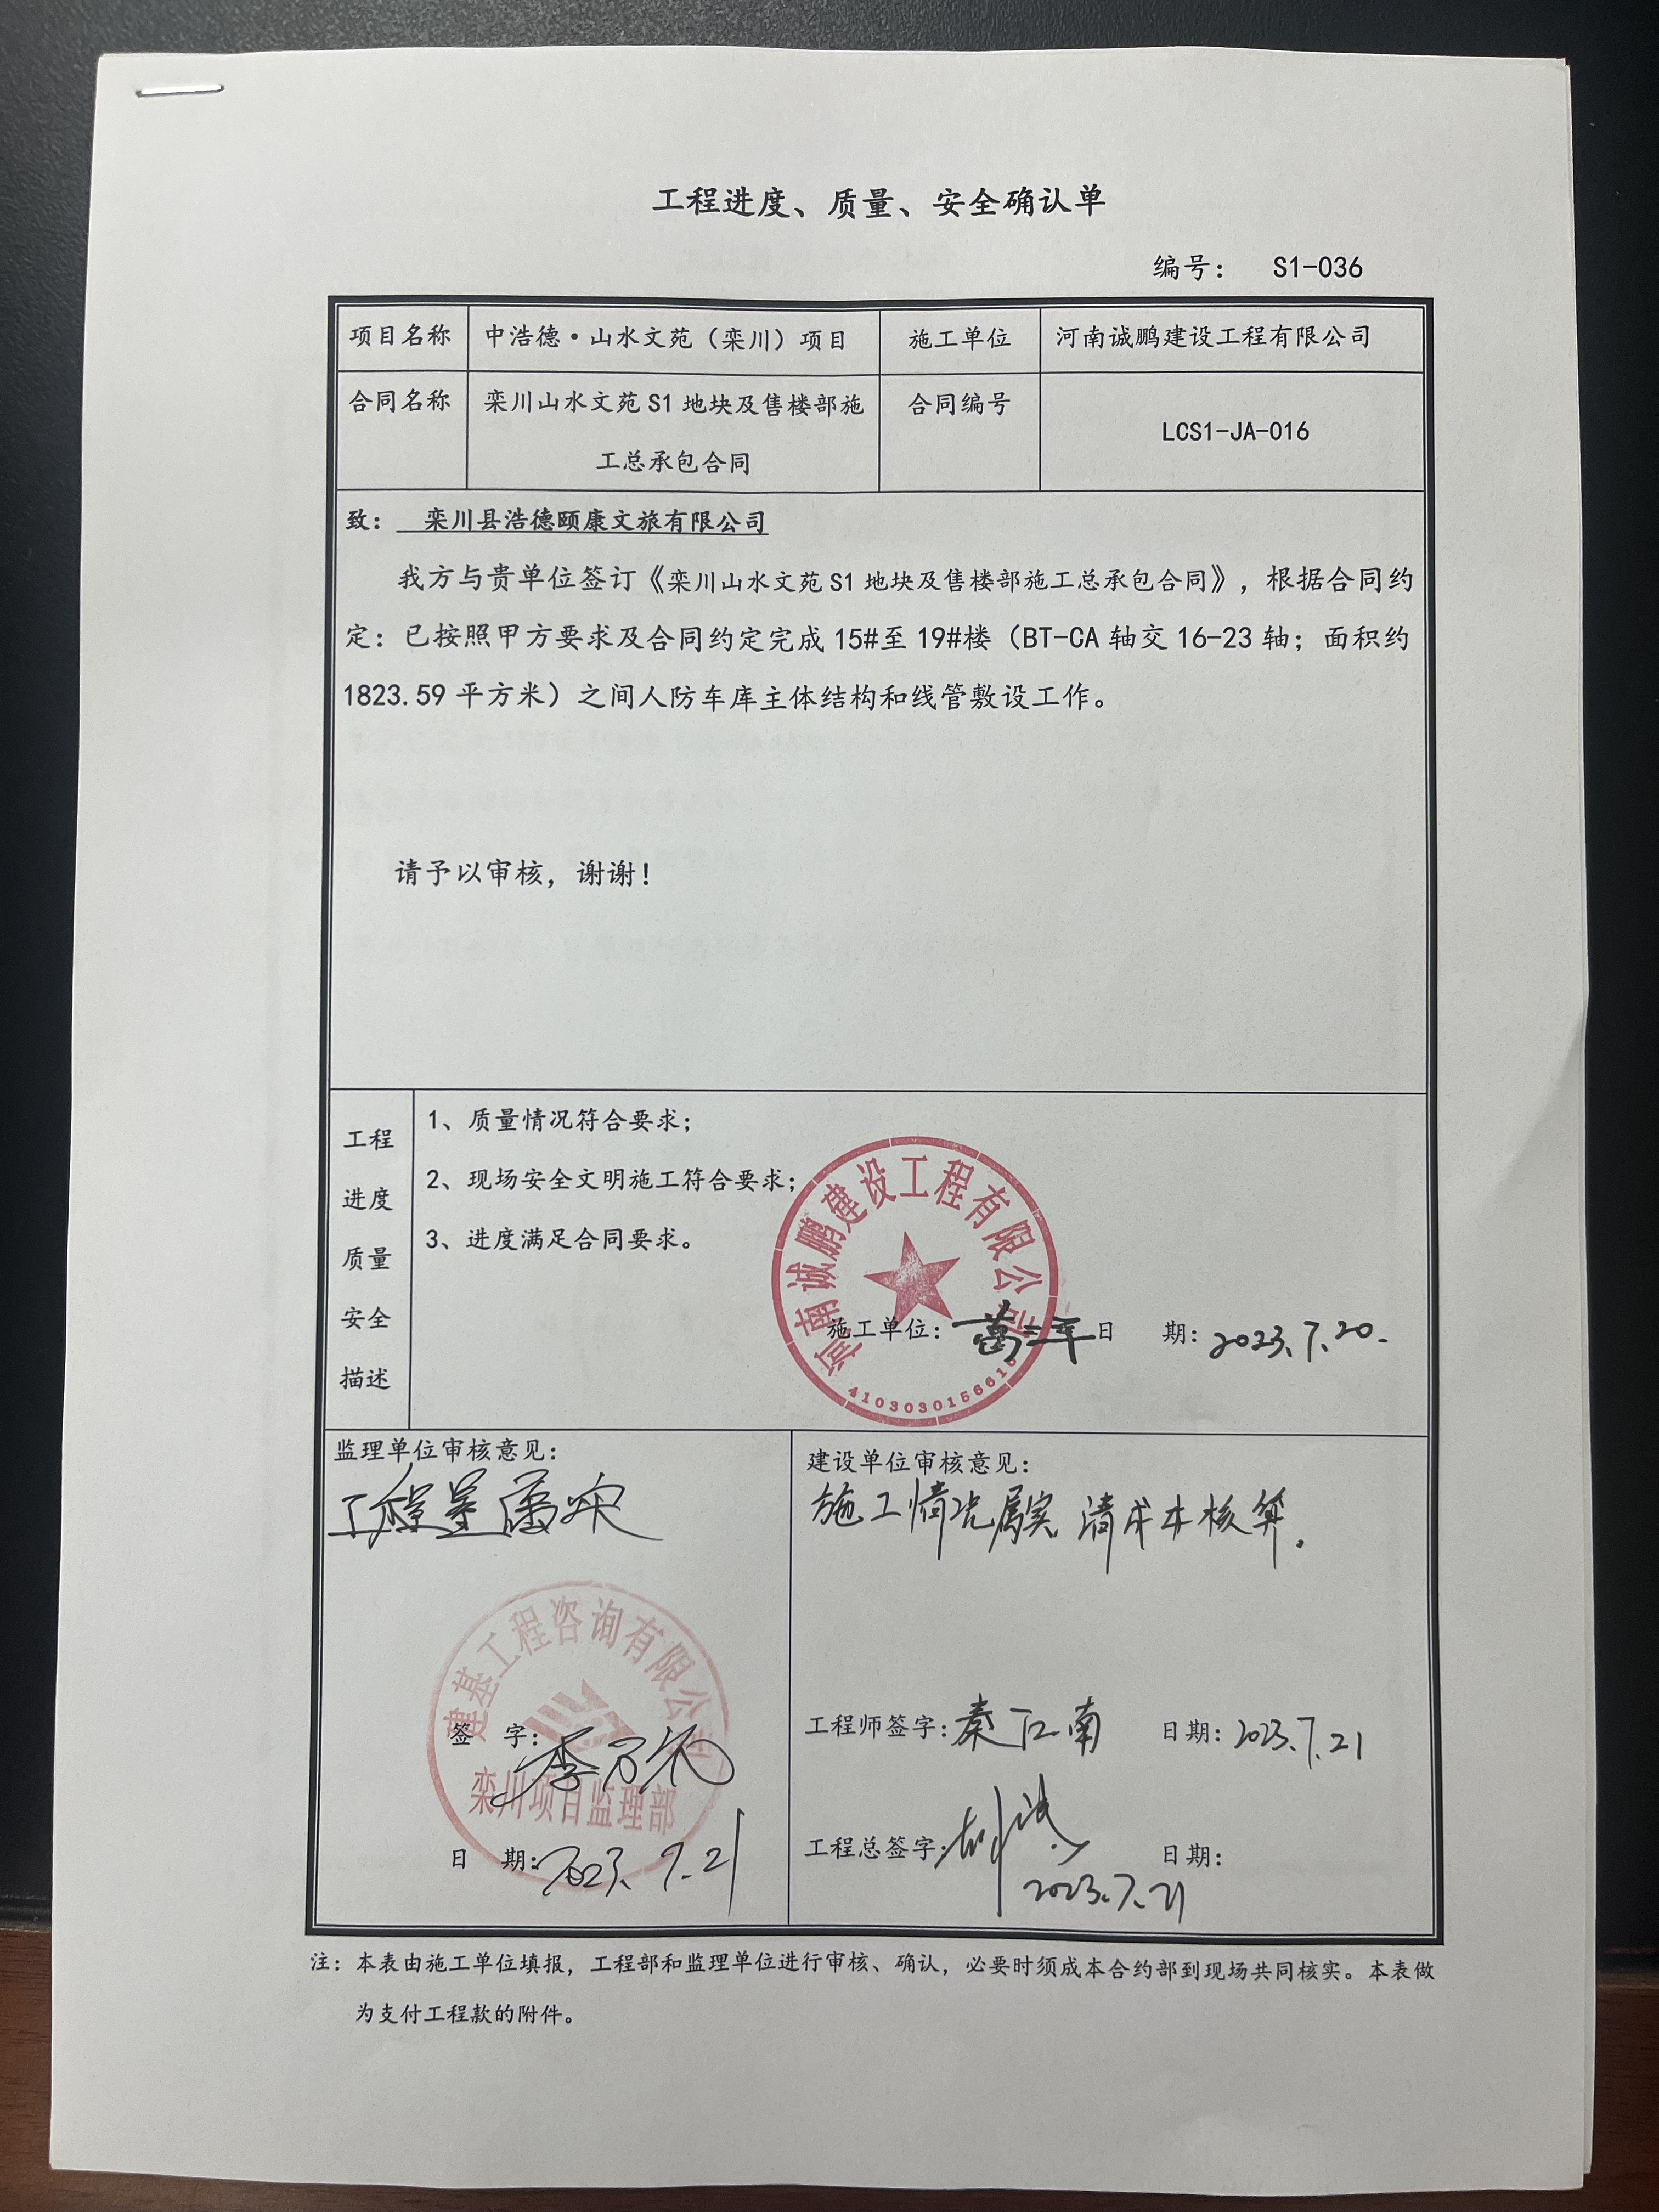 工程进度、质量、安全确认单
编号： S1-036
项目名称 中浩德·山水文苑（栾川）项目 施工单位 河南诚鹏建设工程有限公司
合同名称 栾川山水文苑S1地块及售楼部施 合同编号
工总承包合同 LCS1-JA-016
致： 栾川县浩德颐康文旅有限公司
我方与贵单位签订《栾川山水文苑S1地块及售楼部施工总承包合同》，根据合同约
定：已按照甲方要求及合同约定完成15#至19#楼（BT-CA轴交16-23轴；面积约
1823.59平方米）之间人防车库主体结构和线管敷设工作。
请予以审核，谢谢！
工程
进度
质量
安全
描述
1、质量情况符合要求；
2、现场安全文明施工符合要求；
3、进度满足合同要求。
河南诚鹏建设工程有限公司
施工单位： 日 期：2023.7.20.
监理单位审核意见：
工程量属实
建基工程咨询有限公司
签 字：
栾川项目监理部
日 期：2023.7.21
建设单位审核意见：
施工情况属实 请成本核算.
工程师签字：秦江南 日期：2023.7.21
工程总签字： 日期：
2023.7.21
注：本表由施工单位填报，工程部和监理单位进行审核、确认，必要时须成本合约部到现场共同核实。本表做
为支付工程款的附件。